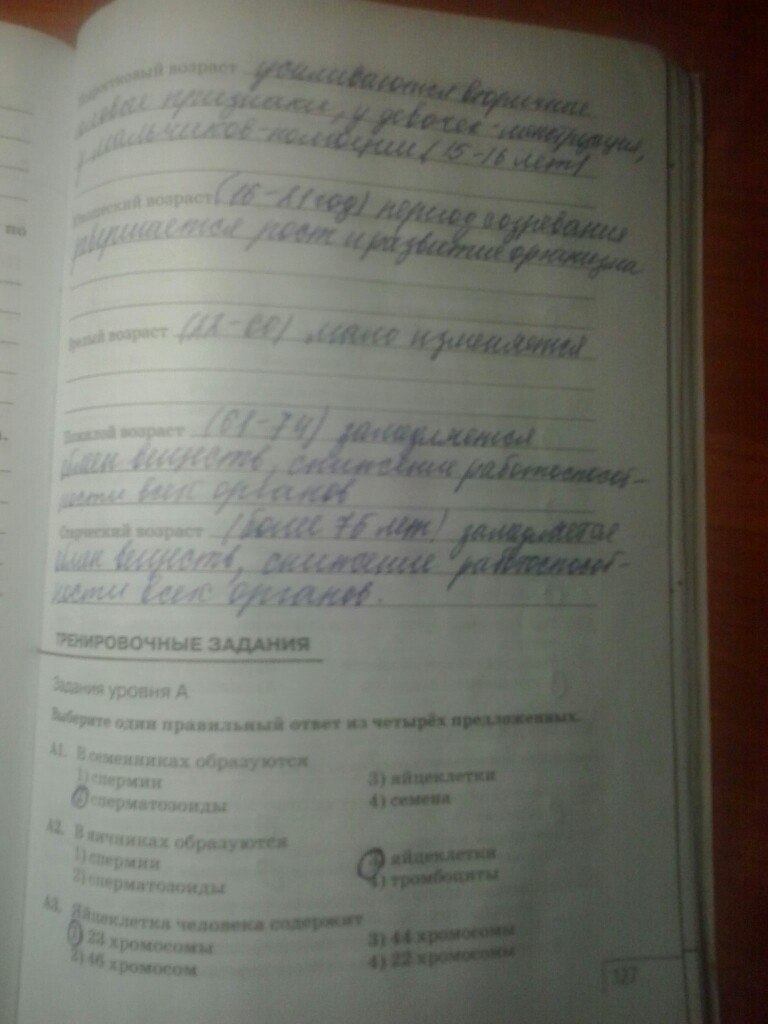 Подростковый возраст усиливаются вторичные
половые признаки, у девочек-менструация,
у мальчиков-поллюции (15-16 лет)
Юношеский возраст (16-21 год) период созревания
завершается рост и развития организма
Зрелый возраст (22-60) мало изменяется
Пожилой возраст (61-74) замедляются
обмен веществ, снижение работоспособ-
ности всех органов
Старческий возраст (более 75 лет) замедляется
обмен веществ, снижение работоспособ-
ности всех органов.
ТРЕНИРОВОЧНЫЕ ЗАДАНИЯ
Задания уровня А
Выберите один правильный ответ из четырёх предложенных.
А1. В семенниках образуются
1) спермии 3) яйцеклетки
2) сперматозоиды 4) семена
А2. В яичниках образуются
1) спермии 3) яйцеклетки
2) сперматозоиды 4) тромбоциты
А3. Яйцеклетка человека содержит
1) 23 хромосомы 3) 44 хромосомы
2) 46 хромосом 4) 22 хромосомы
127
по